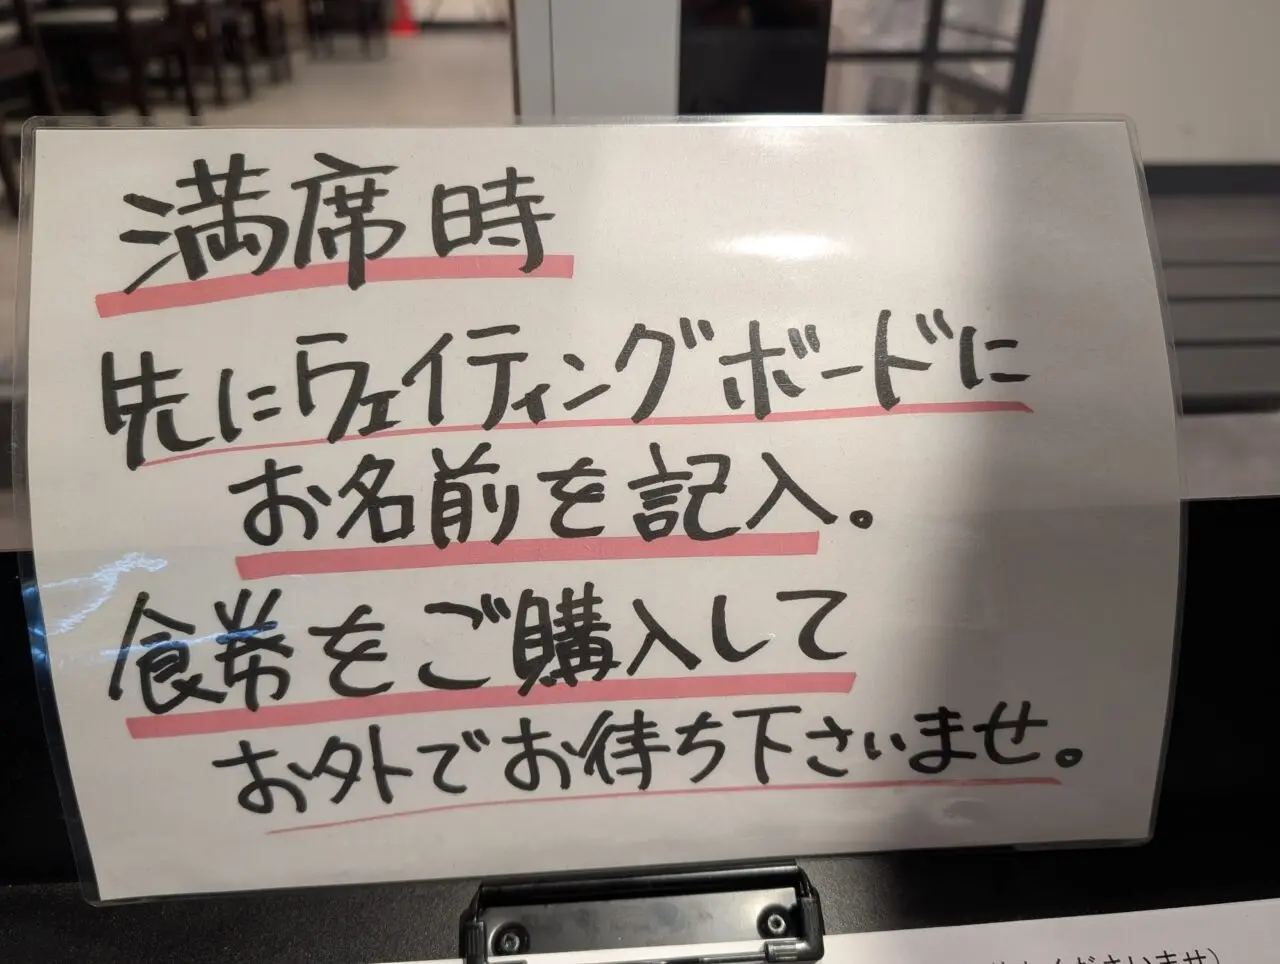 満席時
先にウェイティングボードに
お名前を記入。
食券をご購入して
お外でお待ち下さいませ。
くださいませ)